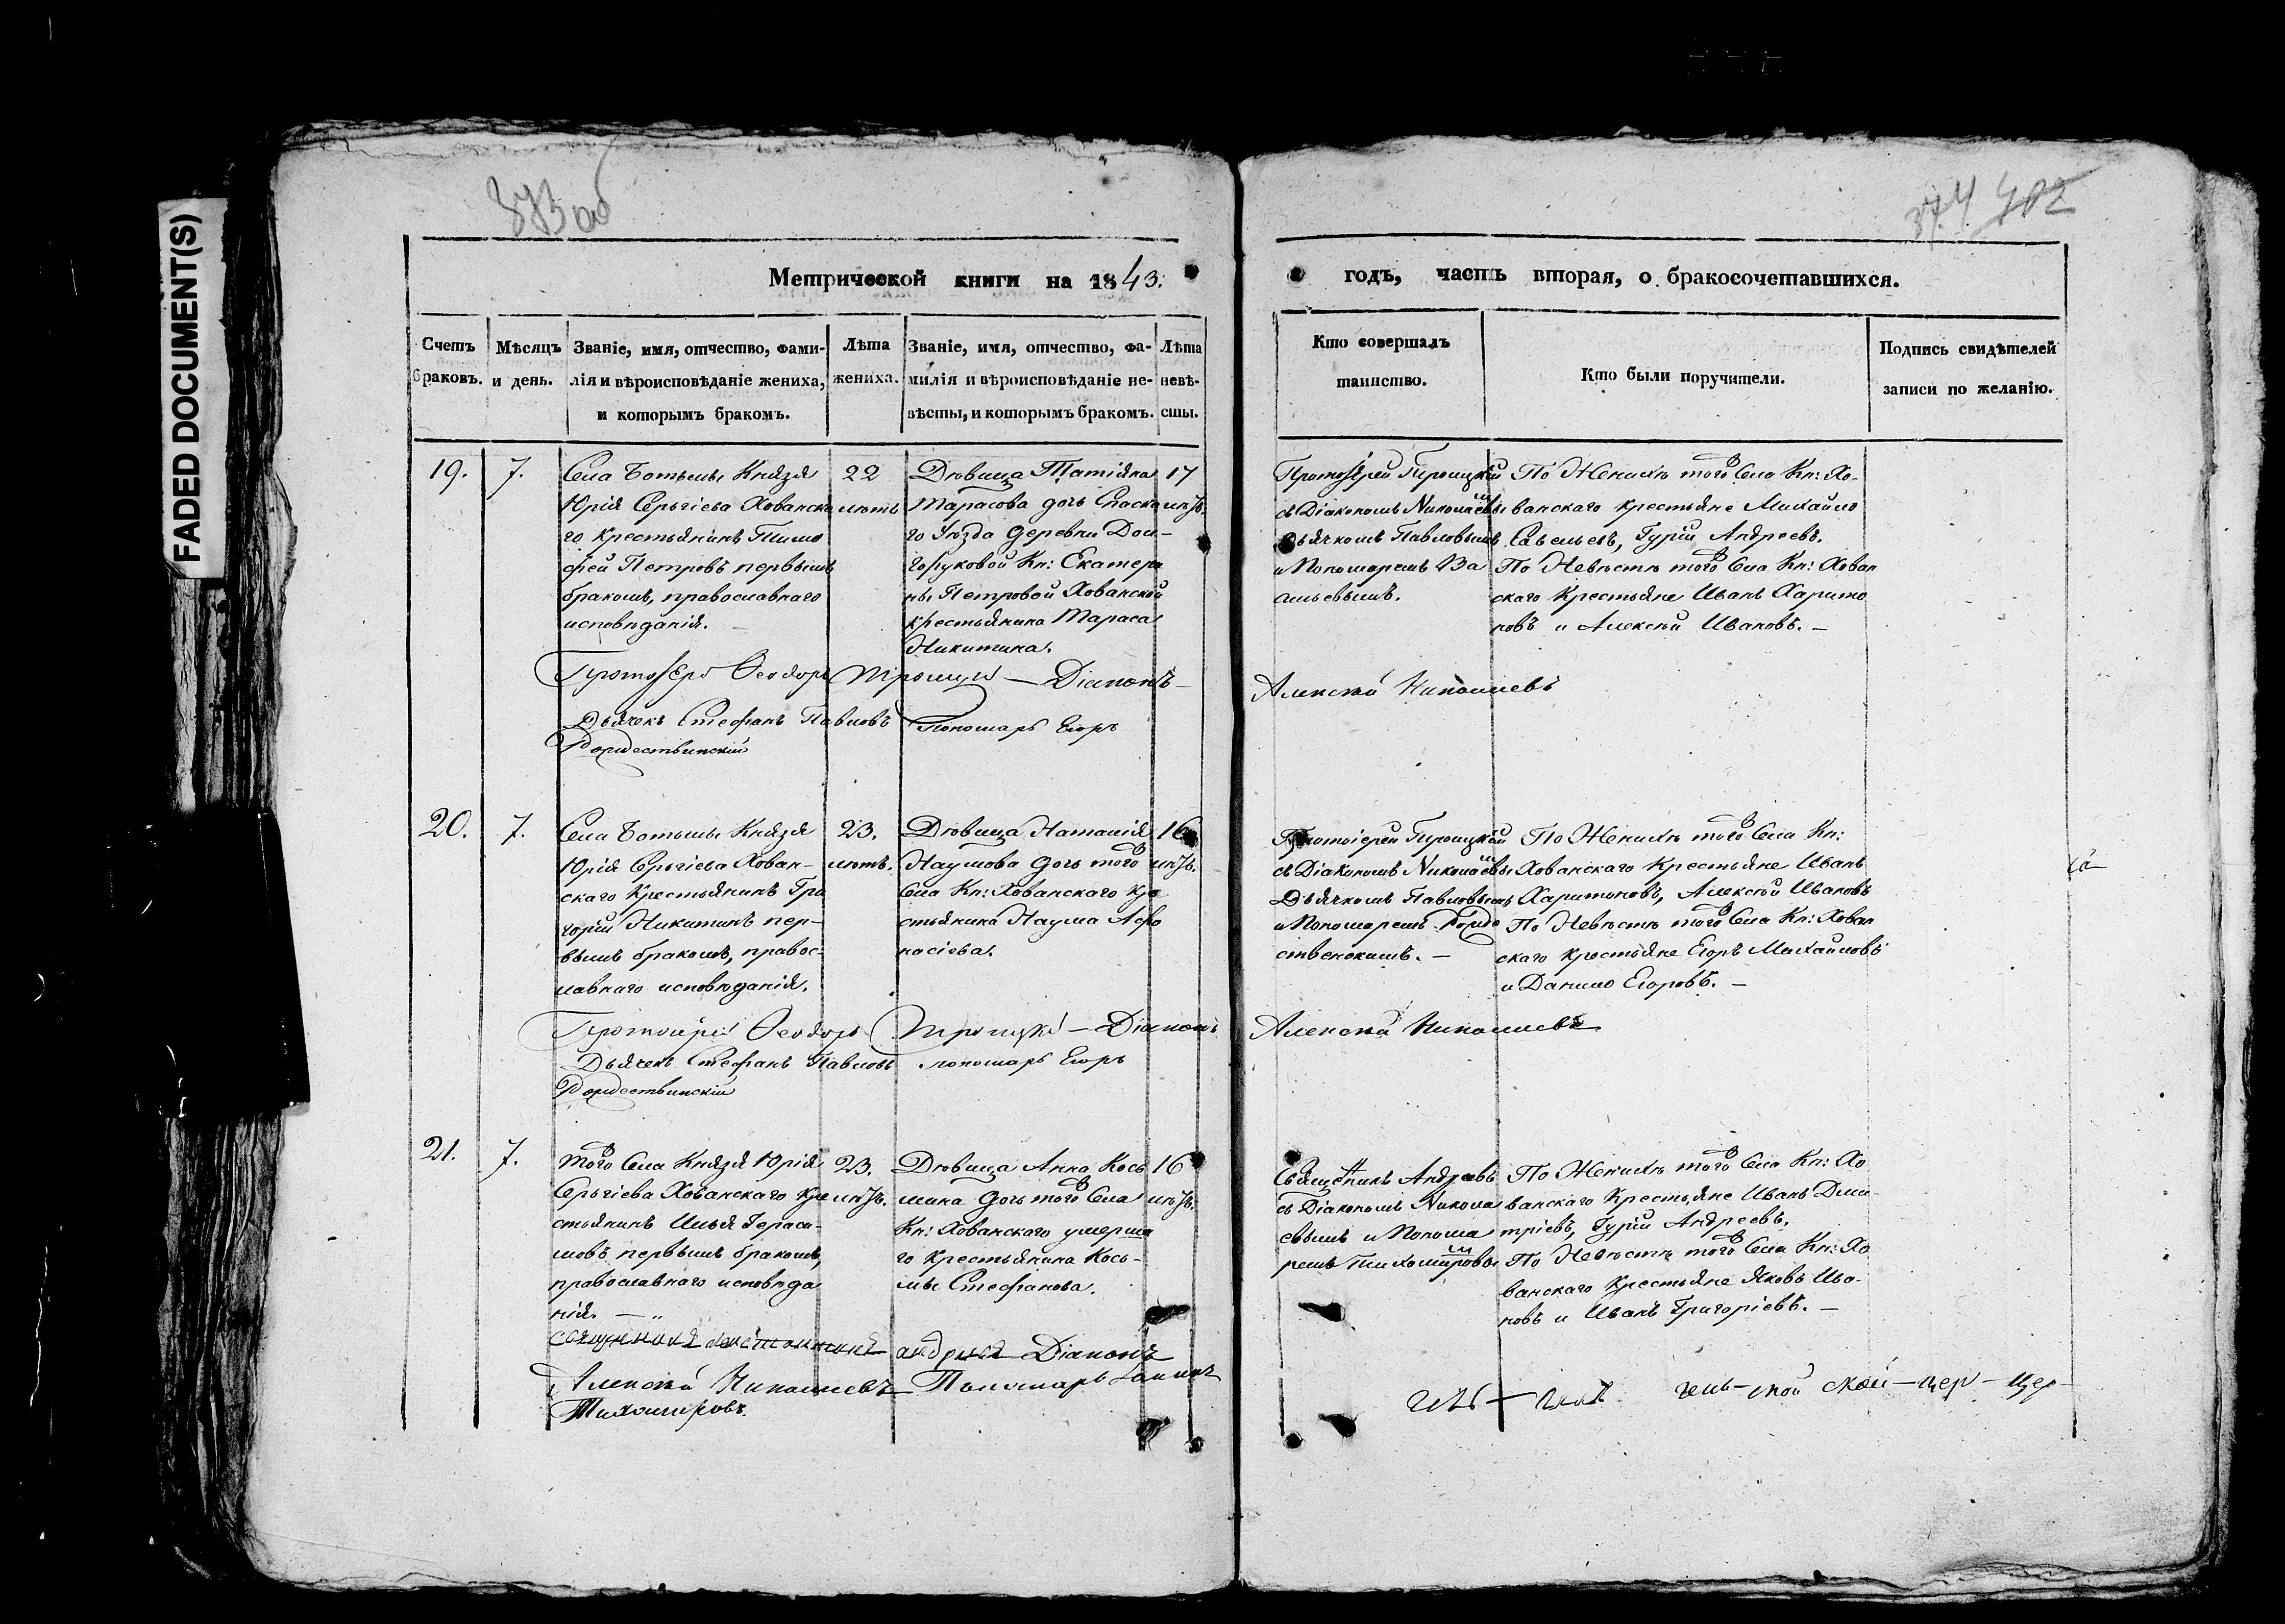 FADED DOCUMENT(S)
373 об
374 402
Метрической книги на 1843.
годъ, часть вторая, о бракосочетавшихся.
Счетъ браковъ.
Мѣсяцъ и день.
Званіе, имя, отчество, фами-
лія и вѣроисповѣданіе жениха,
и которымъ бракомъ.
Лѣта
жениха.
Званіе, имя, отчество, фа-
милія и вѣроисповѣданіе не-
вѣсты, и которымъ бракомъ.
Лѣта
невѣ-
сты.
Кто совершалъ
таинство.
Кто были поручители.
Подпись свидѣтелей
записи по желанію.
19.
7.
Села Ботьмы Князя
Юрія Сергіева Хованска
го Крестьянинъ Тимо
фей Петровъ первымъ
бракомъ, православнаго
исповѣданія.
22
лѣтъ
Дѣвица Татіяна
Тарасова дочь Спаска
го Уѣзда деревни Дол-
горуковой Кн: Екатери
ны Петровой Хованской
крестьянина Тараса
Никитина.
17
лѣтъ.
Протоіерей Троицкій
съ Діакономъ Николаевы
Дьячкомъ Павловымъ
и Пономаремъ Ва
сильевымъ.
По Женихѣ того Села Кн: Хо-
ванскаго крестьяне Михайло
Савельевъ, Гурій Андреевъ.
По Невѣстѣ того Села Кн: Хован
скаго Крестьяне Иванъ Харито
новъ и Алексѣй Ивановъ. —
Протоіерей Ѳеодоръ Троицкій — Діаконъ —
Алексѣй Николаевъ
Дьячекъ Стефанъ Павловъ Пономарь Егоръ
Рождественскій
20.
7.
Села Ботьмы Князя
Юрія Сергіева Хован-
скаго Крестьянинъ Гри
горій Никитинъ пер-
вымъ бракомъ, правос-
лавнаго исповѣданія.
23.
лѣтъ.
Дѣвица Наталія
Наумова дочь того
Села Кн: Хованскаго кре
стьянина Наума Афо
насіева.
16
лѣтъ.
Протоіерей Троицкій
съ Діакономъ Николаевы
Дьячкомъ Павловымъ
и Пономаремъ Рожде
ственскимъ. —
По Женихѣ того Села Кн:
Хованскаго Крестьяне Иванъ
Харитоновъ, Алексѣй Ивановъ
По Невѣстѣ того Села Кн: Хован
скаго крестьяне Егоръ Михайловъ
и Данило Егоровъ. —
Протоіерей Ѳеодоръ Троицкій — Діаконъ
Алексѣй Николаевъ
Дьячекъ Стефанъ Павловъ пономарь Егоръ
Рождественскій
21.
7.
того Села Князя Юрія
Сергіева Хованскаго Кре
стьянинъ Илья Гераси-
мовъ первымъ бракомъ,
православнаго исповѣда
нія. —
23.
лѣтъ.
Дѣвица Анна Кось
мина дочь того Села
Кн: Хованскаго умерша
го Крестьянина Кось-
мы Стефанова.
16
лѣтъ.
Священникъ Андреевъ
съ Діакономъ Никола
евымъ и Понома
ремъ Тихомировы
По Женихѣ того Села Кн: Хо
ванскаго Крестьяне Иванъ Дми-
тріевъ, Гурій Андреевъ.
По Невѣстѣ того Села Кн: Хо
ванскаго Крестьяне Яковъ Ива-
новъ и Иванъ Григоріевъ. —
Діаконъ
Алексѣй Николаевъ Пономарь Іоаннъ
Тихомировъ.
ской — цер — цер